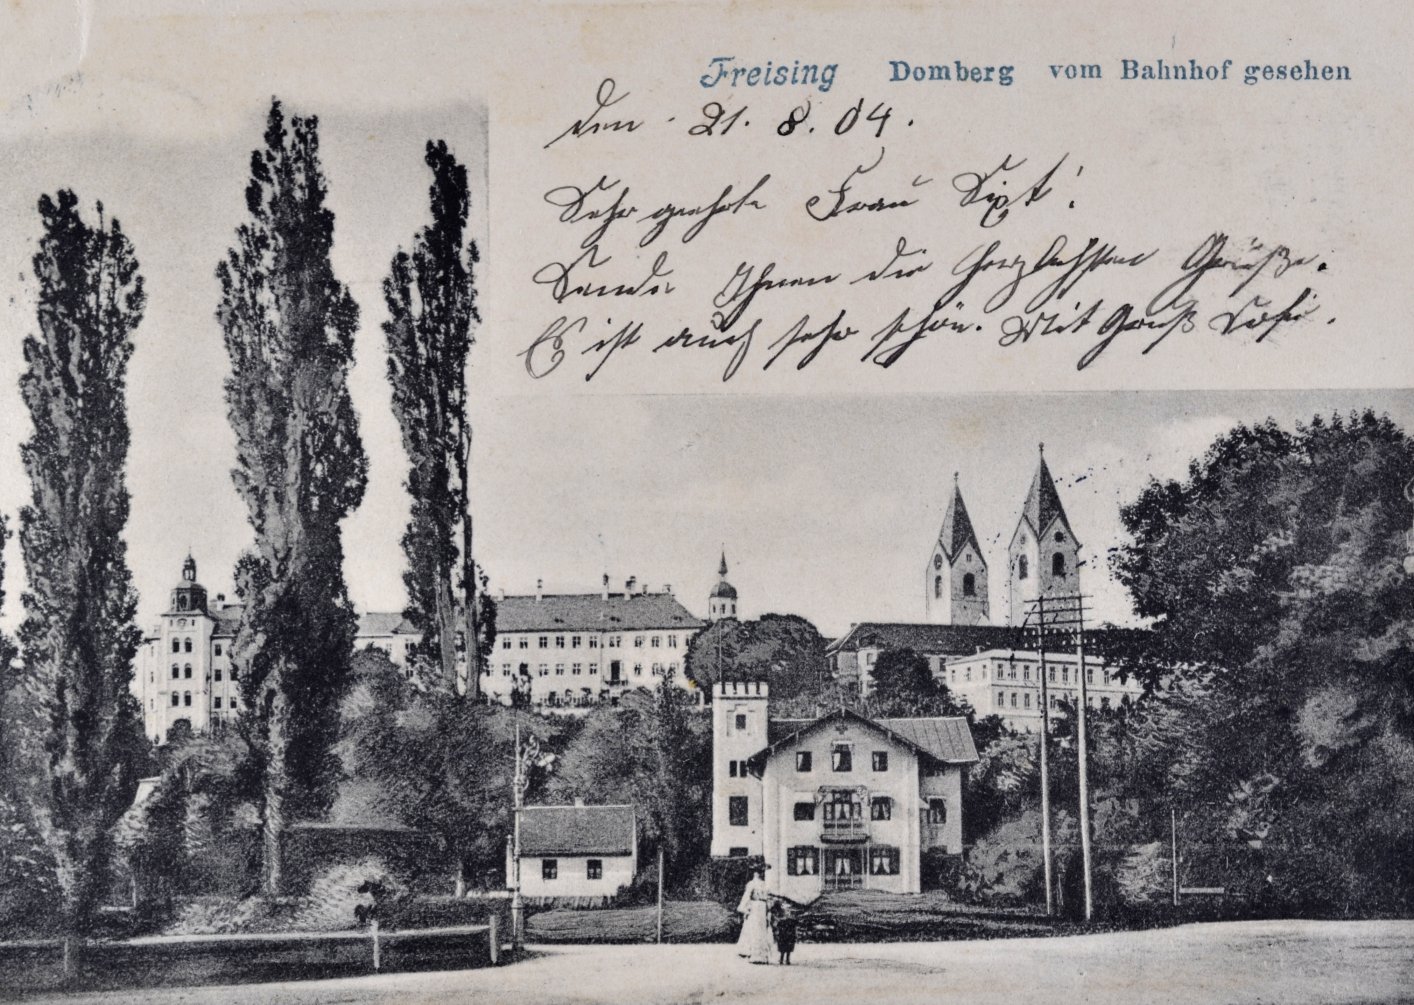 Freising Domberg vom Bahnhof gesehen
den 21. 8. 04.
Sehr geehrte Frau Sixt!
Sende Ihnen die herzlichsten Grüße.
Es ist auch sehr schön. Mit Gruß